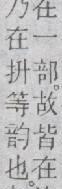 在一部。故皆在
乃在拼等韵也。